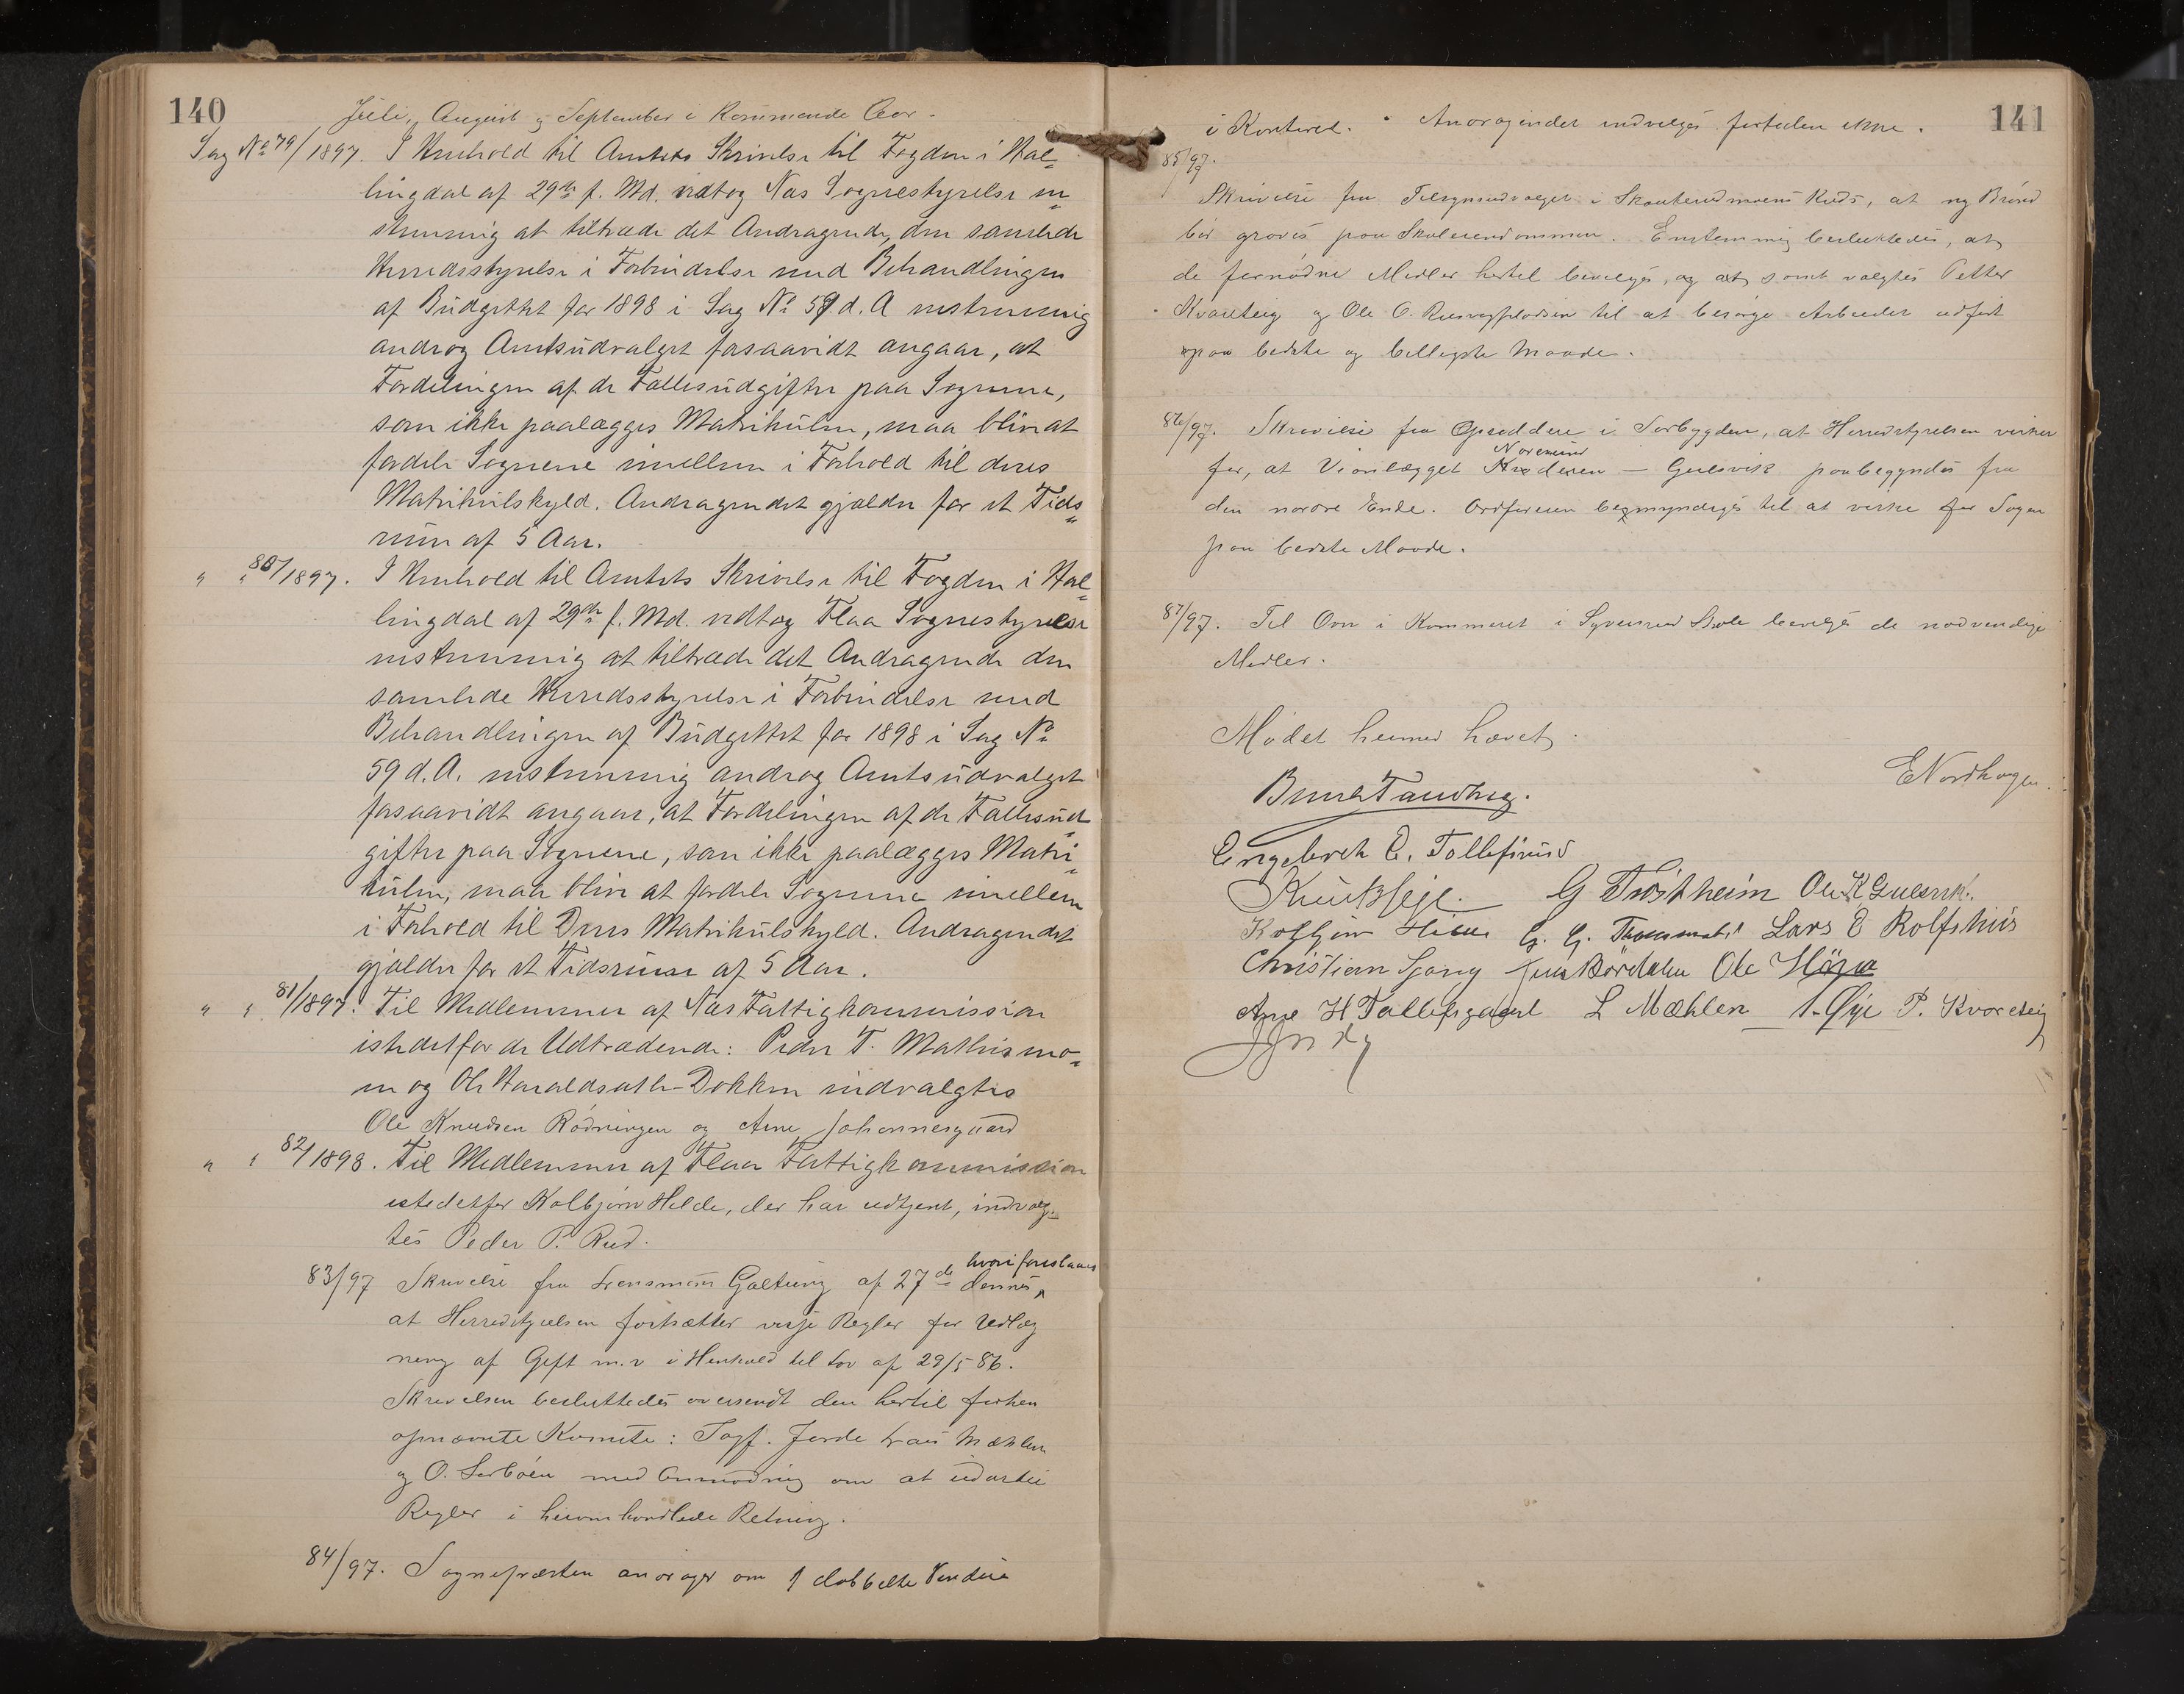 140
Juli, August og September i kommende Aar.
Sag No 79/1897. I Henhold til Amtets Skrivelse til Fogden i Hal-
lingdal af 29de f. Md. vedtog Næs Sognestyrelse en-
stemmig at tiltræde det Andragende, den samlede
Herredsstyrelse i Forbindelse med Behandlingen
af Budgettet for 1898 i Sag No 59 d. A. enstemmig
androg Amtsudvalget forsaavidt angaar, at
Fordelingen af de Fællesudgifter paa Sognene,
som ikke paalægges Matrikulen, maa blive at
fordele Sognene imellem i Forhold til deres
Matrikulskyld. Andragendet gjælder for et Tids-
rum af 5 Aar.
" " 80/1897. I Henhold til Amtets Skrivelse til Fogden i Hal-
lingdal af 29de f. Md. vedtog Flaa Sognestyrelse
enstemmig at tiltræde det Andragende den
samlede Herredsstyrelse i Forbindelse med
Behandlingen af Budgettet for 1898 i Sag No
59 d. A. enstemmig androg Amtsudvalget
forsaavidt angaar, at Fordelingen af de Fællesud-
gifter paa Sognene, som ikke paalægges Matri-
kulen, maa blive at fordele Sognene imellem
i Forhold til Deres Matrikulskyld. Andragendet
gjælder for et Tidsrum af 5 Aar.
" " 81/1897. Til Medlemmer af Næs Fattigkommission
istedetfor de Udtrædende: Peder T. Mathismo-
en og Ole Haraldsæth-Dokken indvalgtes
Ole Knudsen Rödningen og Arne Johannesgaard
" " 82/1898. Til Medlemmer af Flaa Fattigkommission
istedetfor Kolbjørn Hilde, der har udtjent, indvalg-
tes Peder P. Rud.
83/97 Skrivelse fra Lensmann Galtung af 27de dennes, hvori foreslaaes
at Herredstyrelsen fortsætter visse Regler for Udlæg
ning af Gift m.v i Henhold til Lov af 29/5 86.
Skrivelsen besluttedes oversendt den hertil forhen
opnævnte Komite: Sogf. Jorde Lars Mæhlen
og O. Sorböen med Anmodning om at udarbei
Regler i heromhandlede Retning.
84/97. Sognepræsten andrager om 1 dobbelte Vindue
141
i Kontoret. Andragendet indvilges fortiden ikke.
85/97.
Skrivelse fra Tilsynsudvalget i Skouterudmoens Kreds, at ny Brönd
bör graves paa Skoleeiendommen. Enstemmig besluttedes, at
de fornødne Midler hertil bevilges, og at samt valgtes Petter
Kvarteig og Ole O. til at besörge Arbeidet udfört
paa bedste og billigste Maade.
86/97. Skrivelse fra Opsiddere i Sørbygden, at Herredstyrelsen virker
for, at Veianlægget Noresund Krøderen – Gulsvik paabegyndes fra
den nordre Ende. Ordføreren bemyndiges til at virke for Sagen
paa bedste Maade.
87/97. Til Ovn i Kammeret i Skole bevilges de nødvendige
Midler.
Mødet hermed hævet.
E Nordhagen.
Bernh Tandberg.
Engebret E. Tollefsrud
G Tröstheim Ole K Gulsvik.
Kolbjørn Hilde G. G. Lars E Rolfshus
Christian Sjong Jens Bördalen Ole
Arne H Tollefsgaard L Mæhlen P. Kvarteig